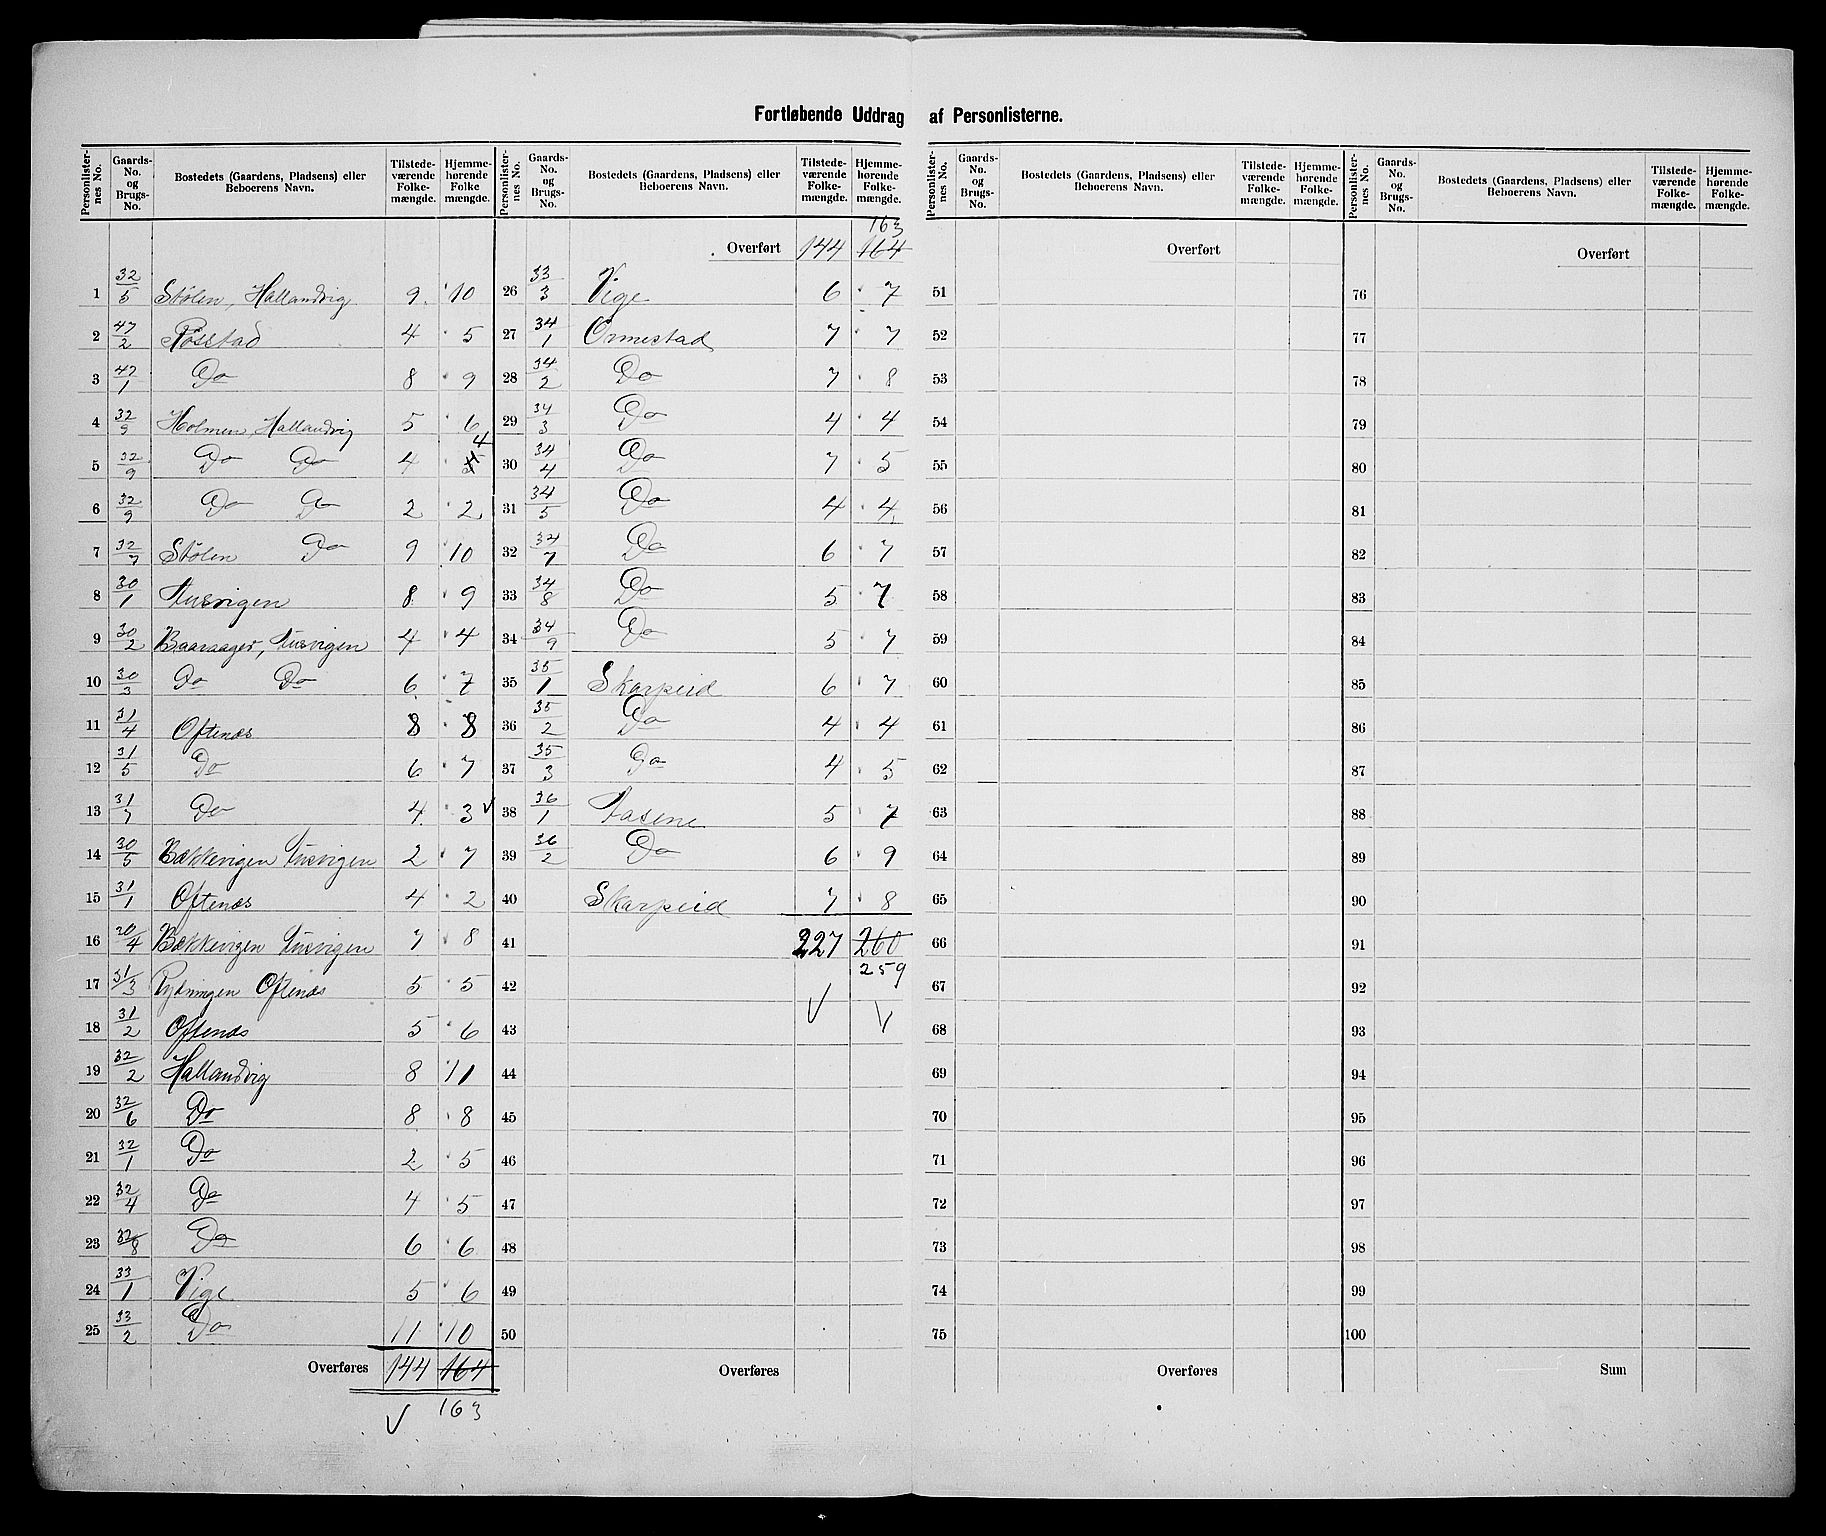 Fortløbende Uddrag af Personlisterne.
Personlisternes No. Gaards-No. og Brugs-No. Bostedets (Gaardens, Pladsens) eller Beboerens Navn. Tilstedeværende Folkemængde. Hjemmehørende Folkemængde.
1 32/5 Stølen, Hallandvig 9 10
2 47/2 Røsstad 4 5
3 47/1 Do 8 9
4 32/9 Holmen, Hallandvig 5 6
5 32/9 Do Do 4 5 4
6 32/9 Do Do 2 2
7 32/7 Stølen Do 9 10
8 30/1 Tusvigen 8 9
9 30/2 Baaraager, Tusvigen 4 4
10 30/3 Do Do 6 7
11 31/4 Oftenæs 8 8
12 31/5 Do 6 7
13 31/7 Do 4 3 √
14 30/5 Bækkevigen Tusvigen 2 7
15 31/1 Oftenæs 4 2
16 30/4 Bækkevigen Tusvigen 7 8
17 31/3 Rydningen Oftenæs 5 5
18 31/2 Oftenæs 5 6
19 32/2 Hallandvig 8 11
20 32/6 Do 8 8
21 32/1 Do 2 5
22 32/4 Do 4 5
23 32/8 Do 6 6
24 33/1 Vige 5 6
25 33/2 Do 11 10
Overføres 144 164
√ 163
Personlisternes No. Gaards-No. og Brugs-No. Bostedets (Gaardens, Pladsens) eller Beboerens Navn. Tilstedeværende Folkemængde. Hjemmehørende Folkemængde.
163
Overført 144 164
26 33/3 Vige 6 7
27 34/1 Ormestad 7 7
28 34/2 Do 7 8
29 34/3 Do 4 4
30 34/4 Do 7 5
31 34/5 Do 4 4
32 34/7 Do 6 7
33 34/8 Do 5 7
34 34/9 Do 5 7
35 35/1 Skarpeid 6 7
36 35/2 Do 4 4
37 35/3 Do 4 5
38 36/1 Aasene 5 7
39 36/2 Do 6 9
40 Skarpeid 7 8
41 227 260
259
42 √ √
43
44
45
46
47
48
49
50
Overføres
Personlisternes No. Gaards-No. og Brugs-No. Bostedets (Gaardens, Pladsens) eller Beboerens Navn. Tilstedeværende Folkemængde. Hjemmehørende Folkemængde.
Overført
51
52
53
54
55
56
57
58
59
60
61
62
63
64
65
66
67
68
69
70
71
72
73
74
75
Overføres
Personlisternes No. Gaards-No. og Brugs-No. Bostedets (Gaardens, Pladsens) eller Beboerens Navn. Tilstedeværende Folkemængde. Hjemmehørende Folkemængde.
Overført
76
77
78
79
80
81
82
83
84
85
86
87
88
89
90
91
92
93
94
95
96
97
98
99
100
Sum